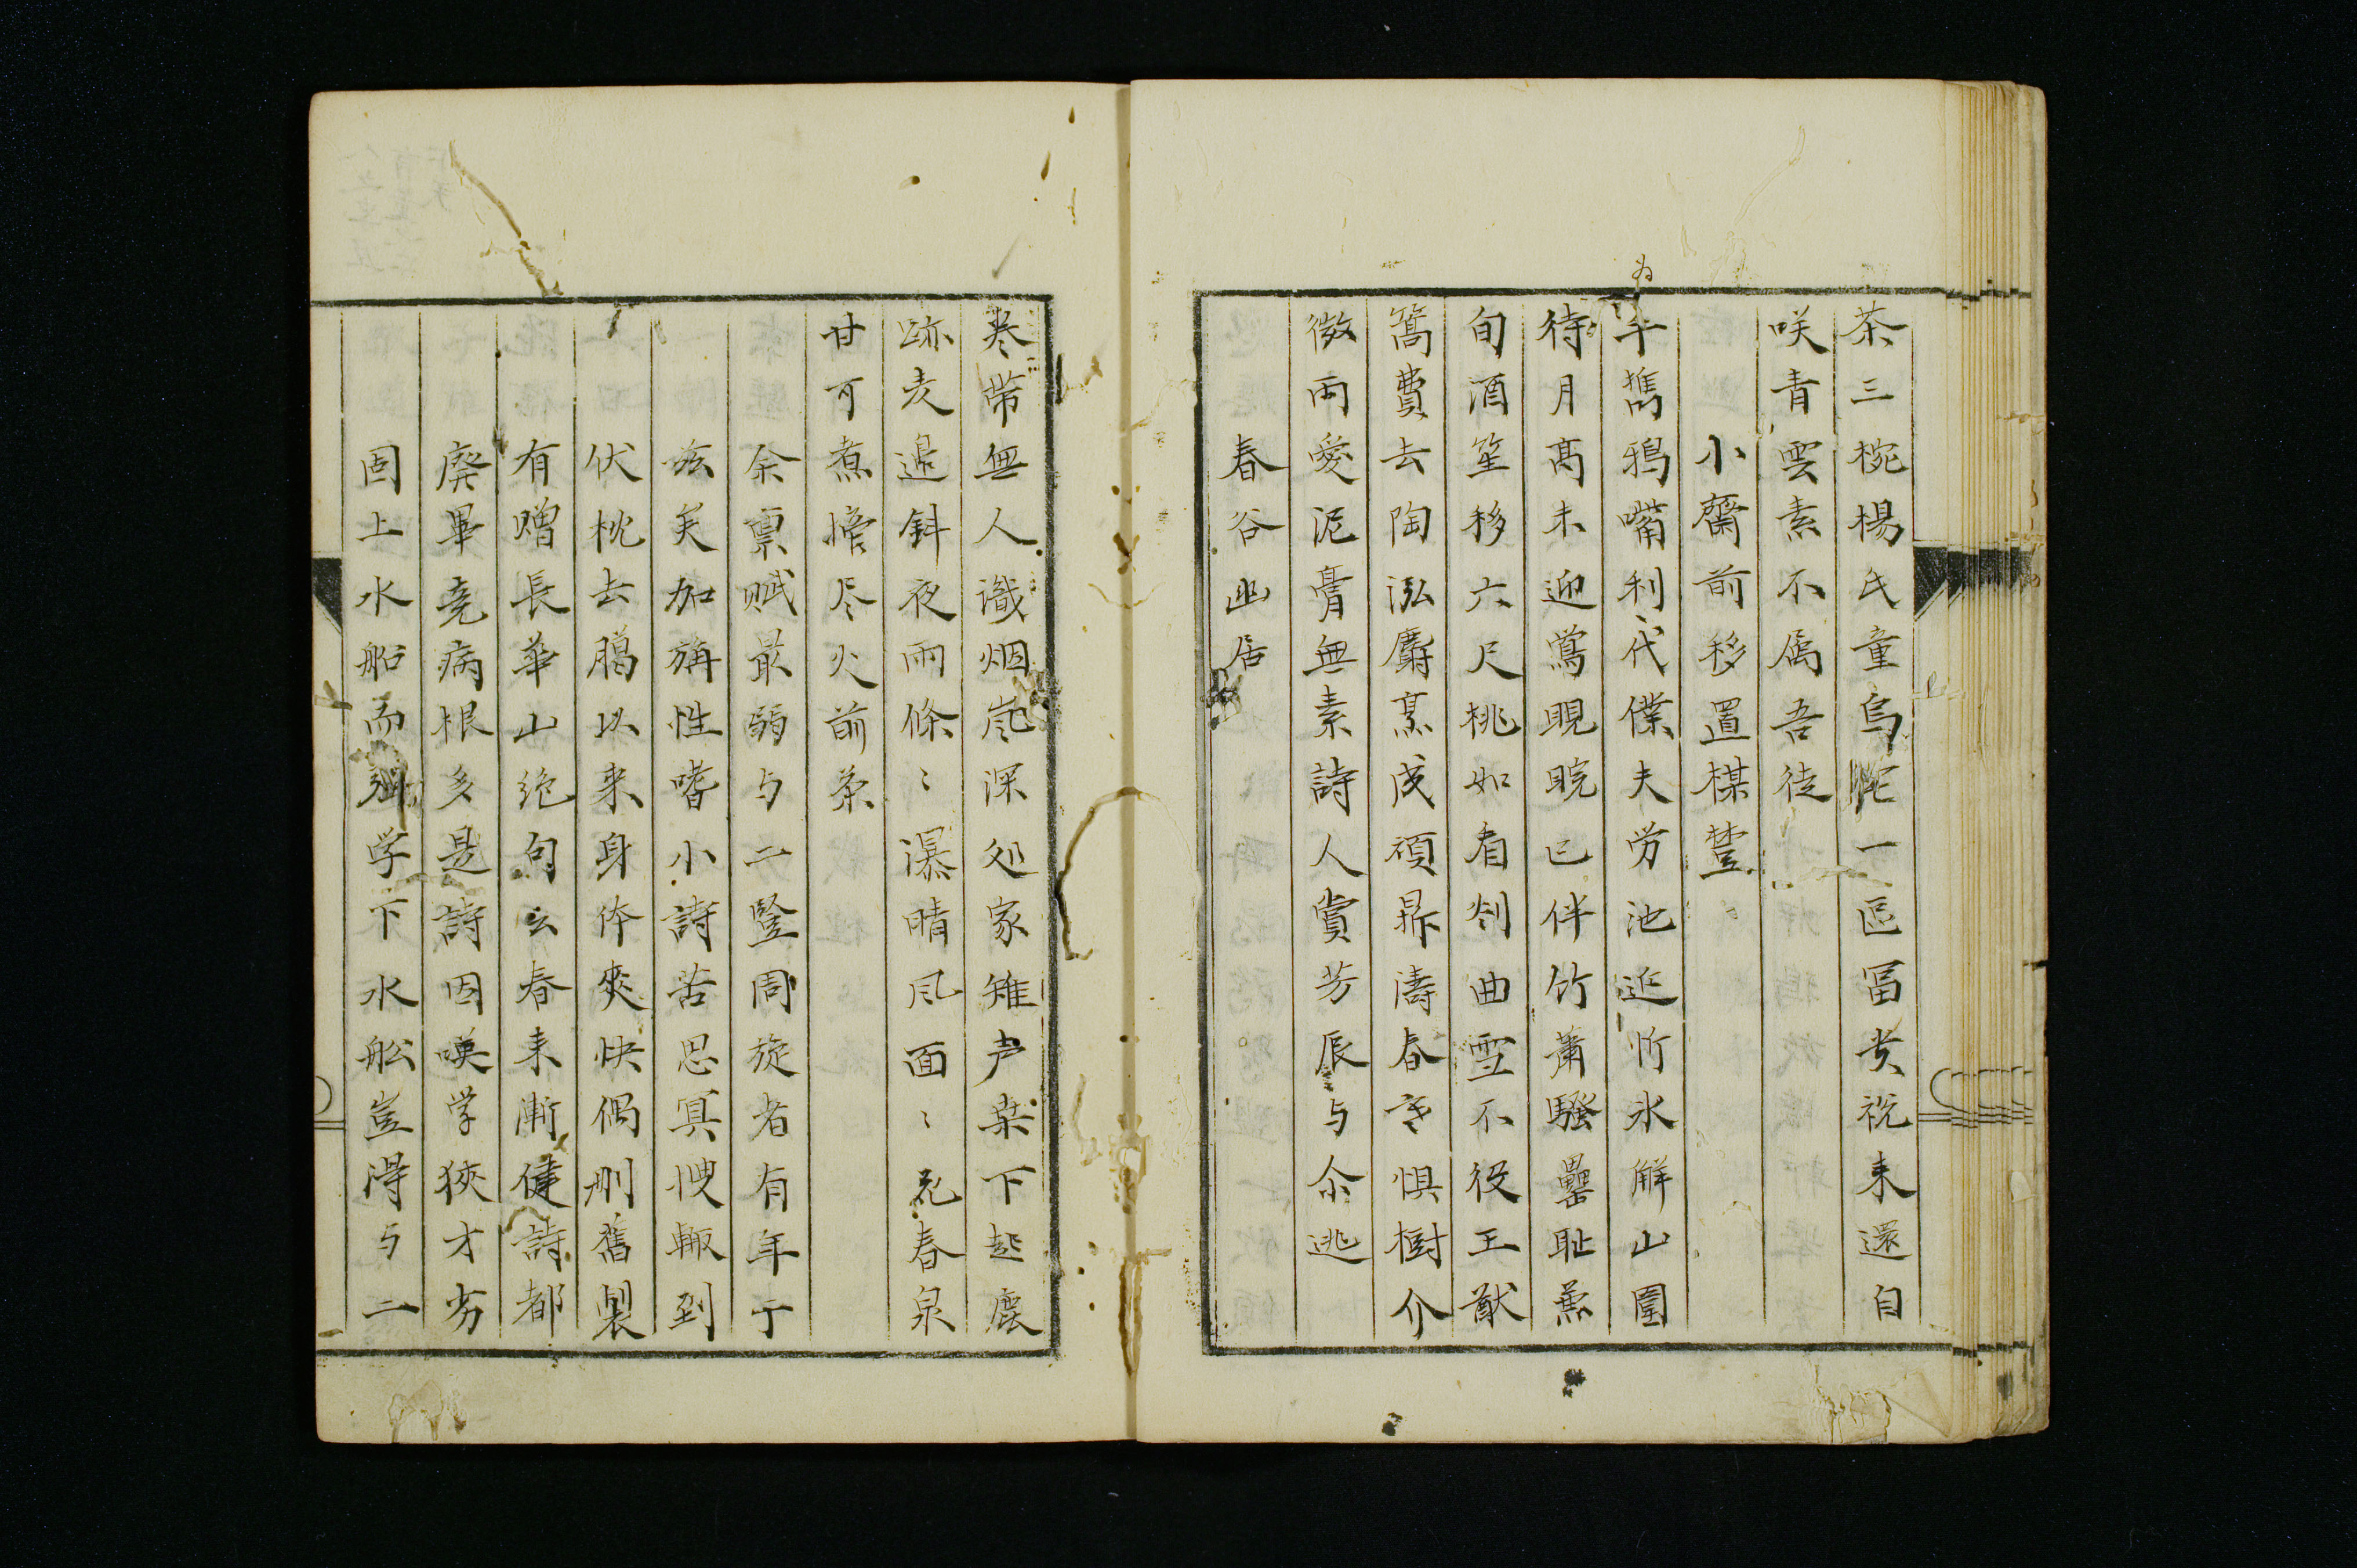 茶三椀楊氏童烏陀一區冨貴祝来還自
咲青雲素不属吾徒
小齋前移置棋䓁
為
千雋鴉嘴利代僕夫労池近竹氷解山圍
待月髙未迎鶯睍睆已伴竹蕭騒罍耻蕉
旬酒笙移六尺桃如看剡曲雪不役王猷
篙費去陶泓麝熏成頑鼎濤春亭惧樹介
微雨愛泥膏無素詩人賞芳辰与余逃
春谷幽居
巻帯無人識烟嵐深処家雉声桒下起鹿
跡麦邉斜夜雨條〻瀑晴風面〻花春泉
甘可煮擔尽火前茶
余禀賦最弱与二竪周旋者有年于
玆矣加旃性嗜小詩苦思冥搜輙到
伏枕去臈以来身体爽快偶刪舊製
有贈長華山絶句云春来漸健詩都
廃畢竟病根多是詩因嘆学狹才劣
固上水船而斑学下水舩豈得与二